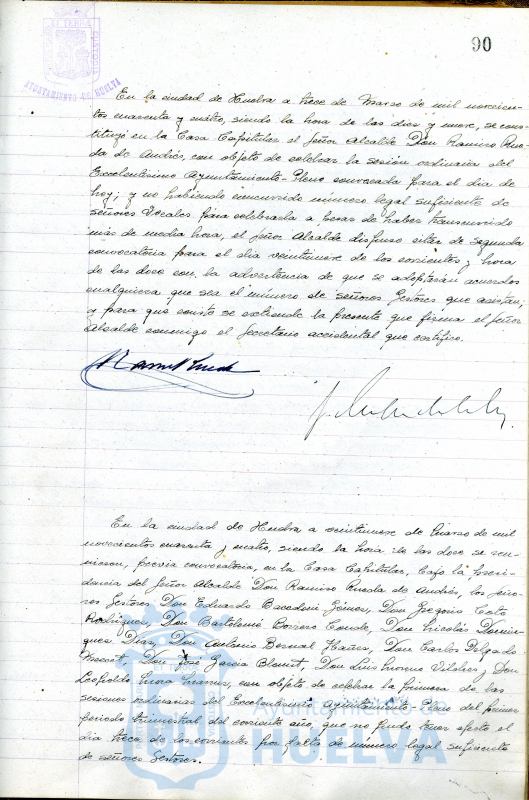 90
AYUNTAMIENTO DE HUELVA
En la ciudad de Huelva a trece de Marzo de mil novecien-
tos cuarenta y cuatro, siendo la hora de las diez y nueve, se cons-
tituyó en la Casa Capitular el Señor Alcalde Don Ramiro Rue-
da de Andrés, con objeto de celebrar la sesión ordinaria del
Excelentísimo Ayuntamiento-Pleno convocada para el dia de
hoy; y no habiendo concurrido número legal suficiente de
señores Vocales para celebrarla a pesar de haber transcurrido
más de media hora, el Señor Alcalde dispuso citar de segunda
convocatoria para el dia veintinueve de los corrientes y hora
de las doce con la advertencia de que se adoptarán acuerdos
cualquiera que sea el número de señores Gestores que asistan;
y para que conste se extiende la presente que firma el Señor
Alcalde conmigo el Secretario accidental que certifico.
En la ciudad de Huelva a veintinueve de Marzo de mil
novecientos cuarenta y cuatro, siendo la hora de las doce se reu-
nieron, previa convocatoria, en la Casa Capitular, bajo la presi-
dencia del Señor Alcalde Don Ramiro Rueda de Andrés, los seño-
res Gestores Don Eduardo Gómez, Don Gregorio Coto
Rodríguez, Don Bartolomé Borrero Conde, Don Nicolás Domin-
guez Diaz, Don Antonio Bernal Don Carlos Delgado
Don José García Don Luis Moreno y Don
Leopoldo con objeto de celebrar la primera de las
sesiones ordinarias del Excelentísimo Ayuntamiento-Pleno del primer
periodo trimestral del corriente año, que no pudo tener efecto el
dia trece de los corrientes por falta de número legal suficiente
de señores Gestores.
HUELVA